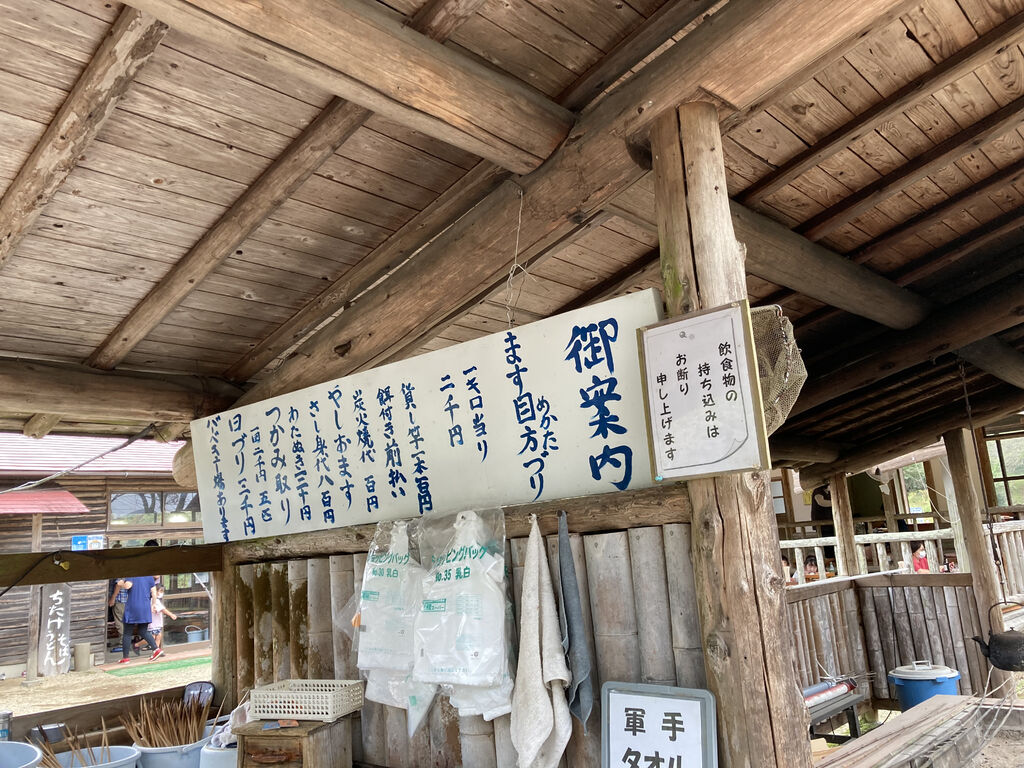 御案内
ます目方づり
めかた
一キロ当り
二千円
貸し竿一本百円
餌付き前払い
炭火焼代 百円
やしおます
さし身代八百円
わたぬき二千円
つかみ取り
一回二千円 五匹
日づり三千円
バーベキュー場あります
飲食物の
持ち込みは
お断り
申し上げます
ッピングバッグ
No.30 乳白
ッピングバッグ
No.35 乳白
軍手
タオル
そば
うどん
ちたけ